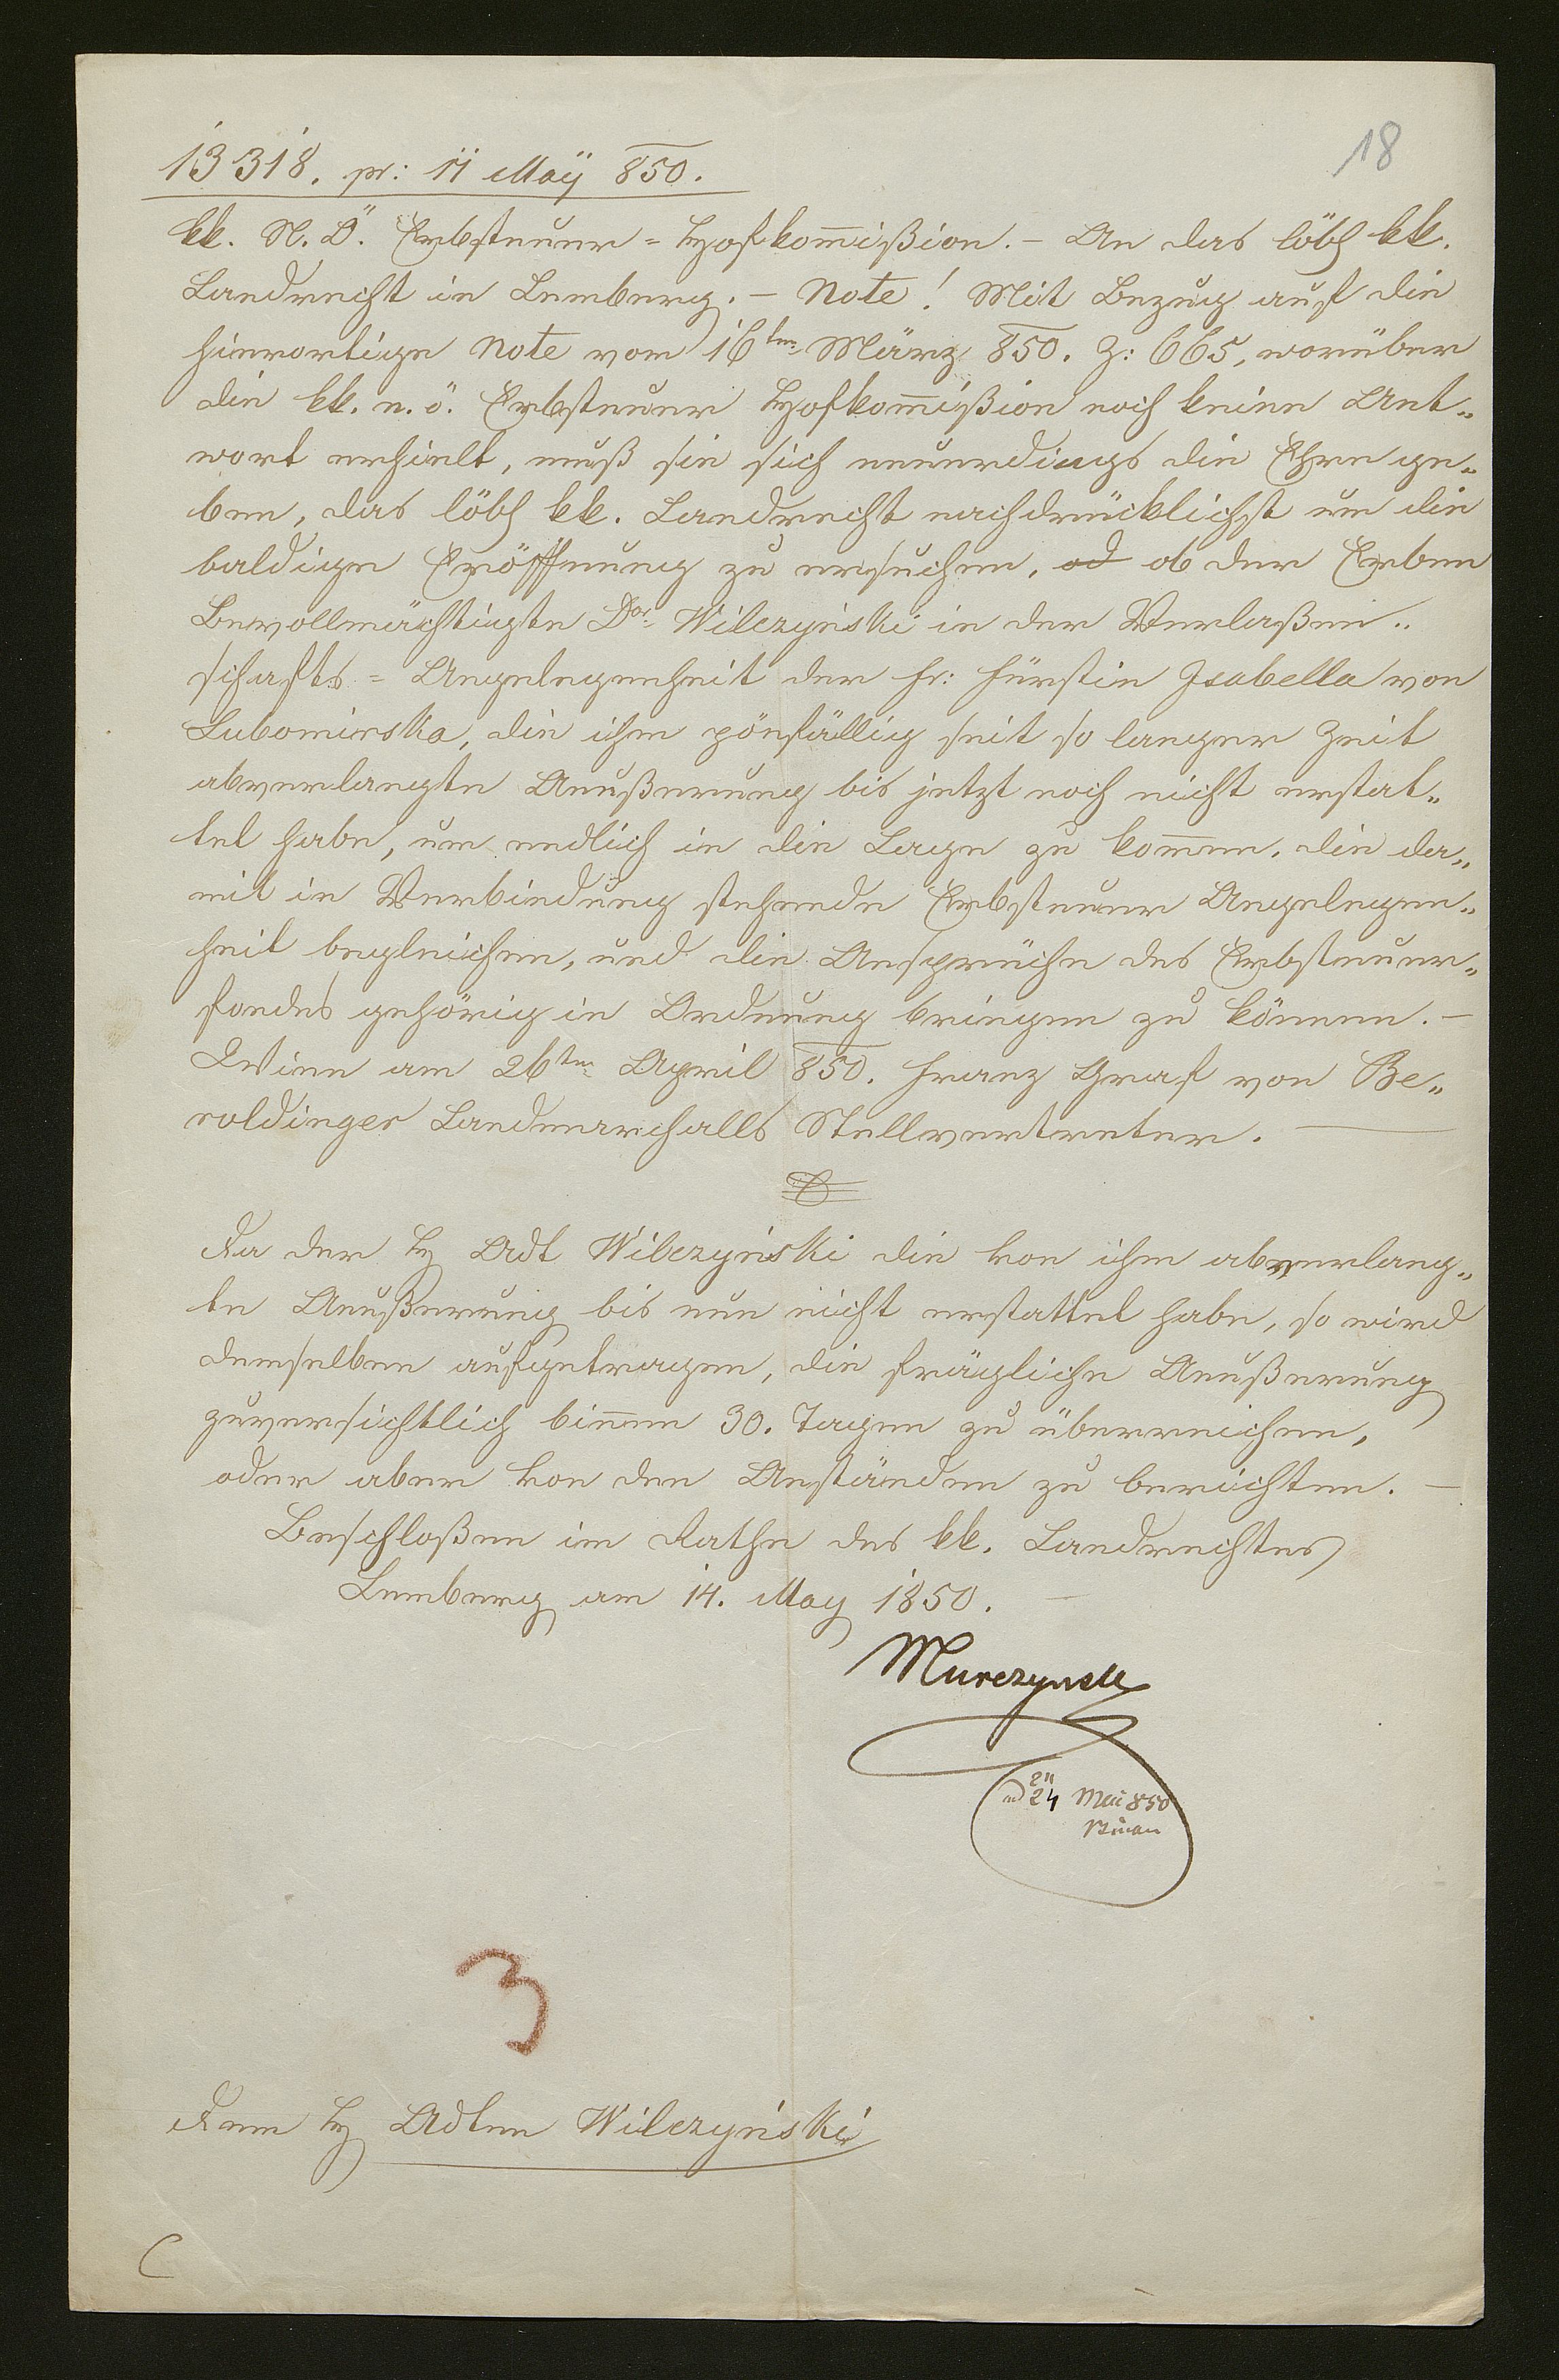 18
13318. pr: 11 Maÿ 850.
kk. N. Ö. Erbsteuer = Hofkom̅ißion. – An das löbl kk.
Landrecht in Lemberg. – Note! Mit Bezug auf die
hierortige Note vom 16ten März 850. Z: 665, worüber
die kk. n. ö. Erbsteuer Hofkom̅ißion noch keine Ant„
wort erhielt, muß sie sich neuerdings die Ehre ge„
ben, das löbl kk. Landrecht nachdrücklichst um die
baldige Eröffnung zu ersuchen, od ob der Erben
Bevollmächtigte Dor Wilczyński in der Verlaßen„
schafts = Angelegenheit der Fr: Fürstin Isabella von
Lubomirska, die ihm pönfällig seit so langer Zeit
abverlangte Aeußerung bis jetzt noch nicht erstat„
tet habe, um endlich in die Lage zu kom̅en, die da„
mit in Verbindung stehende Erbsteuer Angelegen„
heit begleichen, und die Ansprüche des Erbsteuer„
fondes gehörig in Ordnung bringen zu können. –
Wien am 26ten April 850. Franz Graf von Be„
roldinger Landmarchalls Stellvertreter. –
Da der H Adt Wilczyński die von ihm abverlang„
te Aeußerung bis nun nicht erstattet habe, so wird
demselben aufgetragen, die frägliche Aeußerung
zuversichtlich binnen 30. Tagen zu überreichen,
oder aber von den Anständen zu berichten. –
Beschloßen im Rathe des kk. Landrechtes
Lemberg am 14. May 1850. –
24 Mai 850
3
Dem H Adten Wilczyński